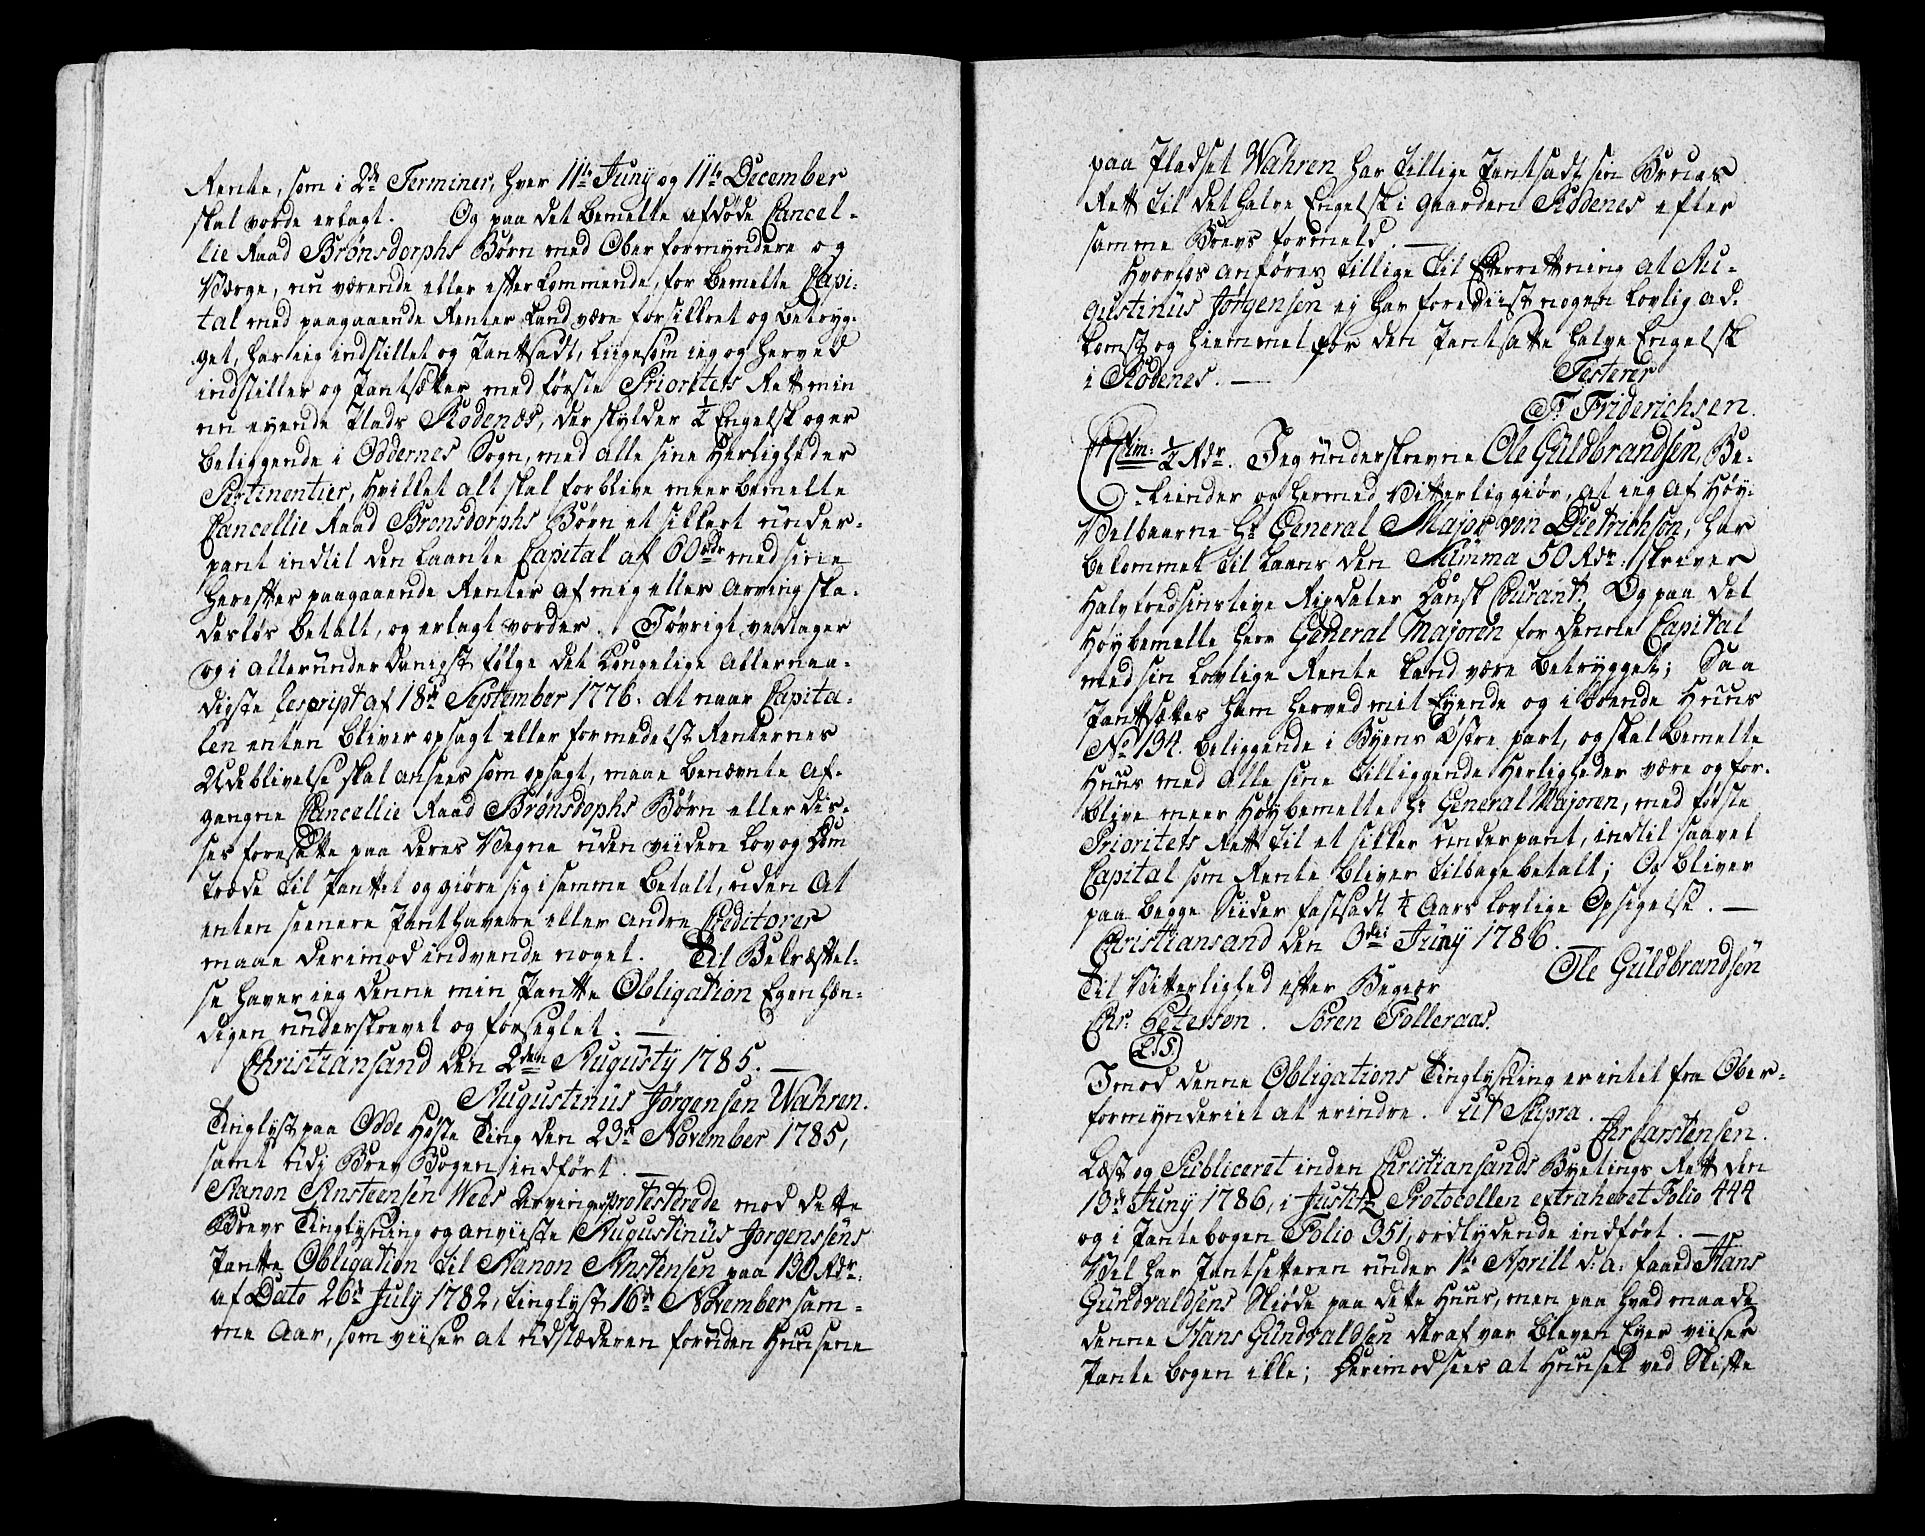 Rente, som i 2de Terminer, hver 11te Juny og 11te December
skal vorde erlagt. Og paa det bemelte afdøde Cancel-
lie Raad Brønsdorphs Børn med Ober formyndere og
Værge, nu værende eller efterkommende, for bemelte Capi-
tal med paagaaende Renter kand være forsikret og betryg-
get, har ieg indstillet og Panttsadt, liigesom ieg og herved
indstiller og Pantsætter med første Prioritets Rett min
nu eyende Plads Kodenæs, der skylder ½ Engelsk og er
beliggende i Oddernes Sogn, med alle sine Herligheder
Pertinentier, hvilket alt skal forblive meerbemelte
Cancellie Raad Bronsdorphs Børn et sikkert under-
pant indtil den laante Capital af 60 rdr med sine
herefter paagaaende Renter af mig eller Arving ska-
desløs betalt, og erlagt vorder. Jøvrigt vedtager
og i allerunderdanigst følge det Kongelige Allernaa-
digste Rescript af 18de September 1776. at naar Capita-
len enten bliver opsagt eller formedelst Renternes
Udeblivelse skal ansees som opsagt, maae benævnte Af-
gangne Cancellie Raad Brønsdophs Børn eller dis-
ses foresatte paa deres Vegne uden viidere Lov og Dom
træde til Panttet og giøre sig i samme betalt, uden at
enten seenere Panthavere eller andre Creditorer
maae derimod indvende noget. Til Bekræftel-
se haver ieg denne min Pantte Obligation Egenhæn-
digen underskrevet og forseglet. —
Christiansand den 2den Augusty 1785. —
Augustinus Jørgensen Wahren.
Tinglyst paa Odde Høste Ting den 23de November 1785,
samt udj Brev Bogen indført. —
Nanon Ansteensen Wees Arvinger protesterede mod dette
Brevs Tinglysning og anviiste Augustinus Jorgensens
Pantte Obligation til Nanon Anstensen paa 190 Rdr.
af Dato 26de July 1782, tinglyst 16de November sam-
me Aar, som viiser at udstæderen foruden Huusene
paa Pladset Wahren har tillige Pantsadt sin Brugs
Rett til det halve Engelsk i Gaarden Kodenes efter
samme Brevs formeld. —
Hvorhos anføres tillige til Efterrettning at Au-
gustinus Jørgensen ej har foreviist nogen lovlig ad-
komst og hiemmel for den Pantsatte halve Engelsk
i Kodenes. —
Testerer
F. Friderichsen.
½ Rdr. Jeg underskrevne Ole Guldbrandsen, Be-
kiender og hermed Vitterliggiør, at ieg af Høy-
Velbaarne Hr General Major von Dietrichson, har
bekommet til Laans den Summa 50 Rdr. skriver
Halvtredsinstyve Rixdaler Dansk Courant. Og paa det
Høybemelte Herr General Majoren for denne Capital
med sin lovlige Rente kand være betrygget; Saa
Panttsættes ham herved mit Eyende og iboende Huus
No 134. beliggende i Byens Østre part, og skal bemelte
Huus med alle sine tilliggende Herligheder være og for-
blive meer Høybemelte Hr General Majoren, med første
Prioritets Rett til et sikker underpant, indtil saavel
Capital som Rente bliver tilbagebetalt; Og bliver
paa begge Siider fastsadt ¼ Aars lovlige Opsigelse. —
Christiansand den 3die Juny 1786. —
Ole Guldbrandsen
Til Vitterlighed efter Begiær
Chr. Peterson. Søren Folleraas.
L.S.
Imod denne Obligations Tinglysning er intet fra Ober-
formynderiet at erindre. Ut Supra.
Chr Carstensen.
Læst og Publiceret inden Christiansands Byetings Rett den
13de Juny 1786, i Justitz Protocollen extraheret Folio 444
og i Pantebogen Folio 351, ordlydende indført. —
Vel har Pantsetteren under 1te Aprill d: a: faaed Hans
Gundvaldsens Skiøde paa dette Huus, men paa hvad maade
denne Hans Gundvaldsen deraf var bleven Eyer viiser
Pante bogen ikke; Derimod sees at Huuset ved Skifte